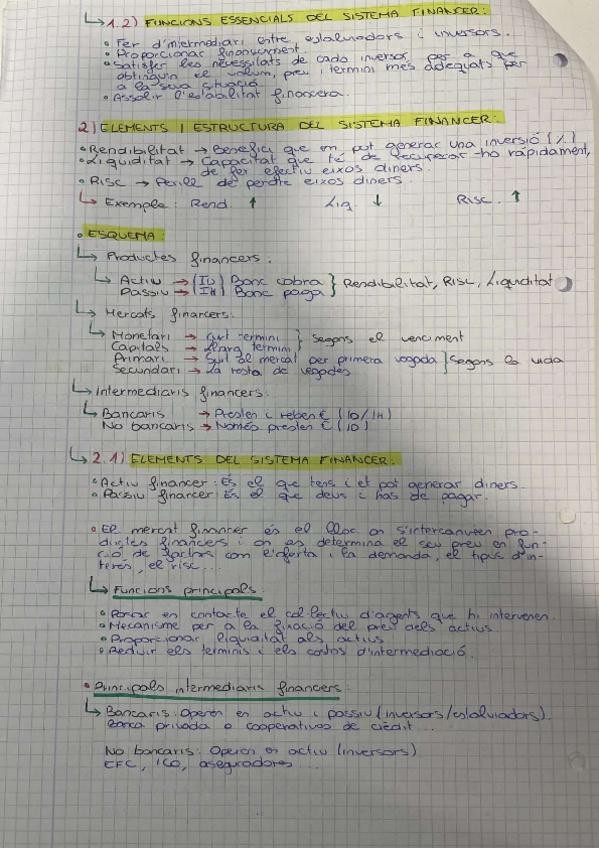 ↳1.2) FUNCIONS ESSENCIALS DEL SISTEMA FINANCER:
• Fer d'intermediari entre estalviadors i inversors.
• Proporcionar finançament.
• Satisfer les necessitats de cada inversor per a que
obtinguin el volum, preu i termini més adequats per
a la seva situació.
• Assolir l'estabilitat financera.
2) ELEMENTS I ESTRUCTURA DEL SISTEMA FINANCER:
• Rendibilitat → Benefici que en pot generar una inversió (%)
• Liquiditat → Capacitat que té de recuperar-ho ràpidament,
de fer efectiu eixos diners.
• RISC → Perill de perdre eixos diners.
↳ Exemple: Rend. ↑ Liq. ↓ RISC. ↑
• ESQUEMA:
↳ Productes financers.
↳ Actiu → (10) Banc cobra } Rendibilitat, RISC, Liquiditat
Passiu → (14) Banc paga }
↳ Mercats financers:
↳ Monetari → Curt termini } Segons el venciment
Capitals → Llarg termini }
Primari → Surt al mercat per primera vegada } Segons la vida
Secundari → La resta de vegades
↳ Intermediaris financers:
↳ Bancaris → Presten i reben € (10/14)
No bancaris → Només presten € (10)
↳ 2.1) ELEMENTS DEL SISTEMA FINANCER:
• Actiu financer: És el que tens i et pot generar diners.
• Passiu financer: És el que deus i has de pagar.
• El mercat financer és el lloc on s'intercanvien pro-
ductes financers i on es determina el seu preu en fun-
ció de factors com l'oferta i la demanda, el tipus d'in-
terés, el risc...
↳ Funcions principals
• Posar en contacte el col·lectiu d'agents que hi intervenen.
• Mecanisme per a la fixació del preu dels actius.
• Proporcionar liquiditat als actius.
• Reduir els terminis i els costos d'intermediació.
• Principals intermediaris financers:
↳ Bancaris: Operen en actiu i passiu (inversors/estalviadors).
Banca privada o cooperatives de crèdit...
No bancaris: Operen en actiu (inversors)
EFC, ICO, asseguradores...